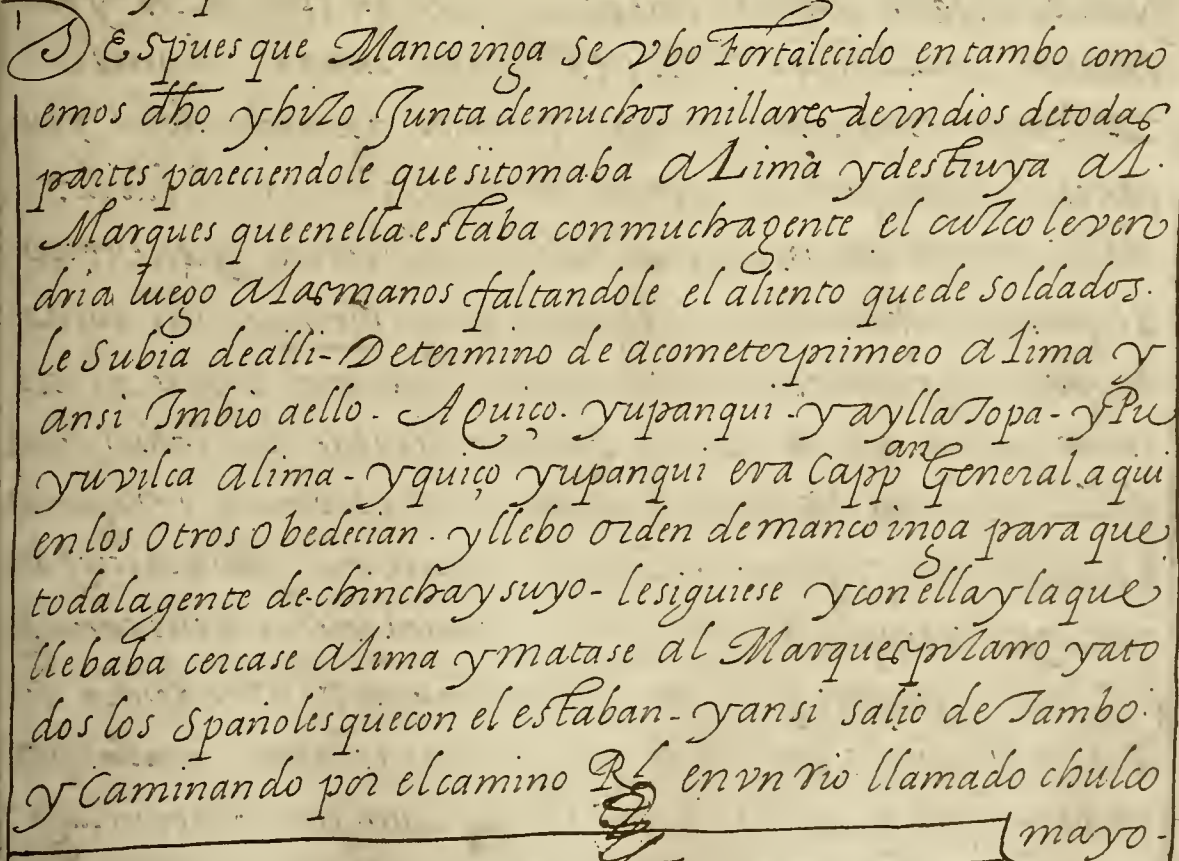 DEspues que Manco inga Se vbo Fortalecido en tambo como
emos dho y hizo Junta de muchos millares de indios de todas
partes pareciendole que si tomaba a Lima y destruya al
Marques que en ella estaba con mucha gente el cuzco le ven
dria luego a las manos faltandole el aliento que de soldados.
le Subia de alli - Determino de acometer primero a lima y
ansi Imbio a ello. A Quiço. yupanqui - y aylla Topa - y Pu
yuvilca a lima - y quiço yupanqui era Capp an General a qui
en los Otros Obedecian. y llebo orden de manco inga para que
toda la gente de chinchay suyo - le siguiese y con ella y la que
llebaba cercase a lima y matase al Marques pizarro y a to
dos los Spañoles que con el estaban - y ansi salio de Tambo.
y Caminando por el camino Rl en vn rio llamado chulco
mayo -